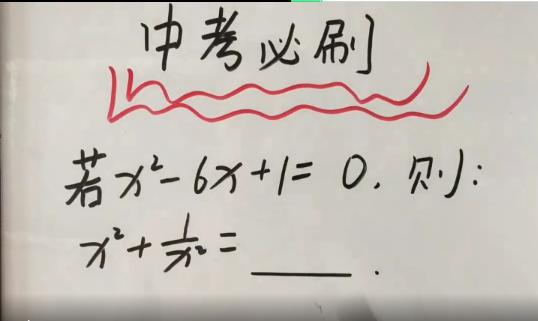 中考必刷
若x²-6x+1=0，则：
x²+1/x²=____.